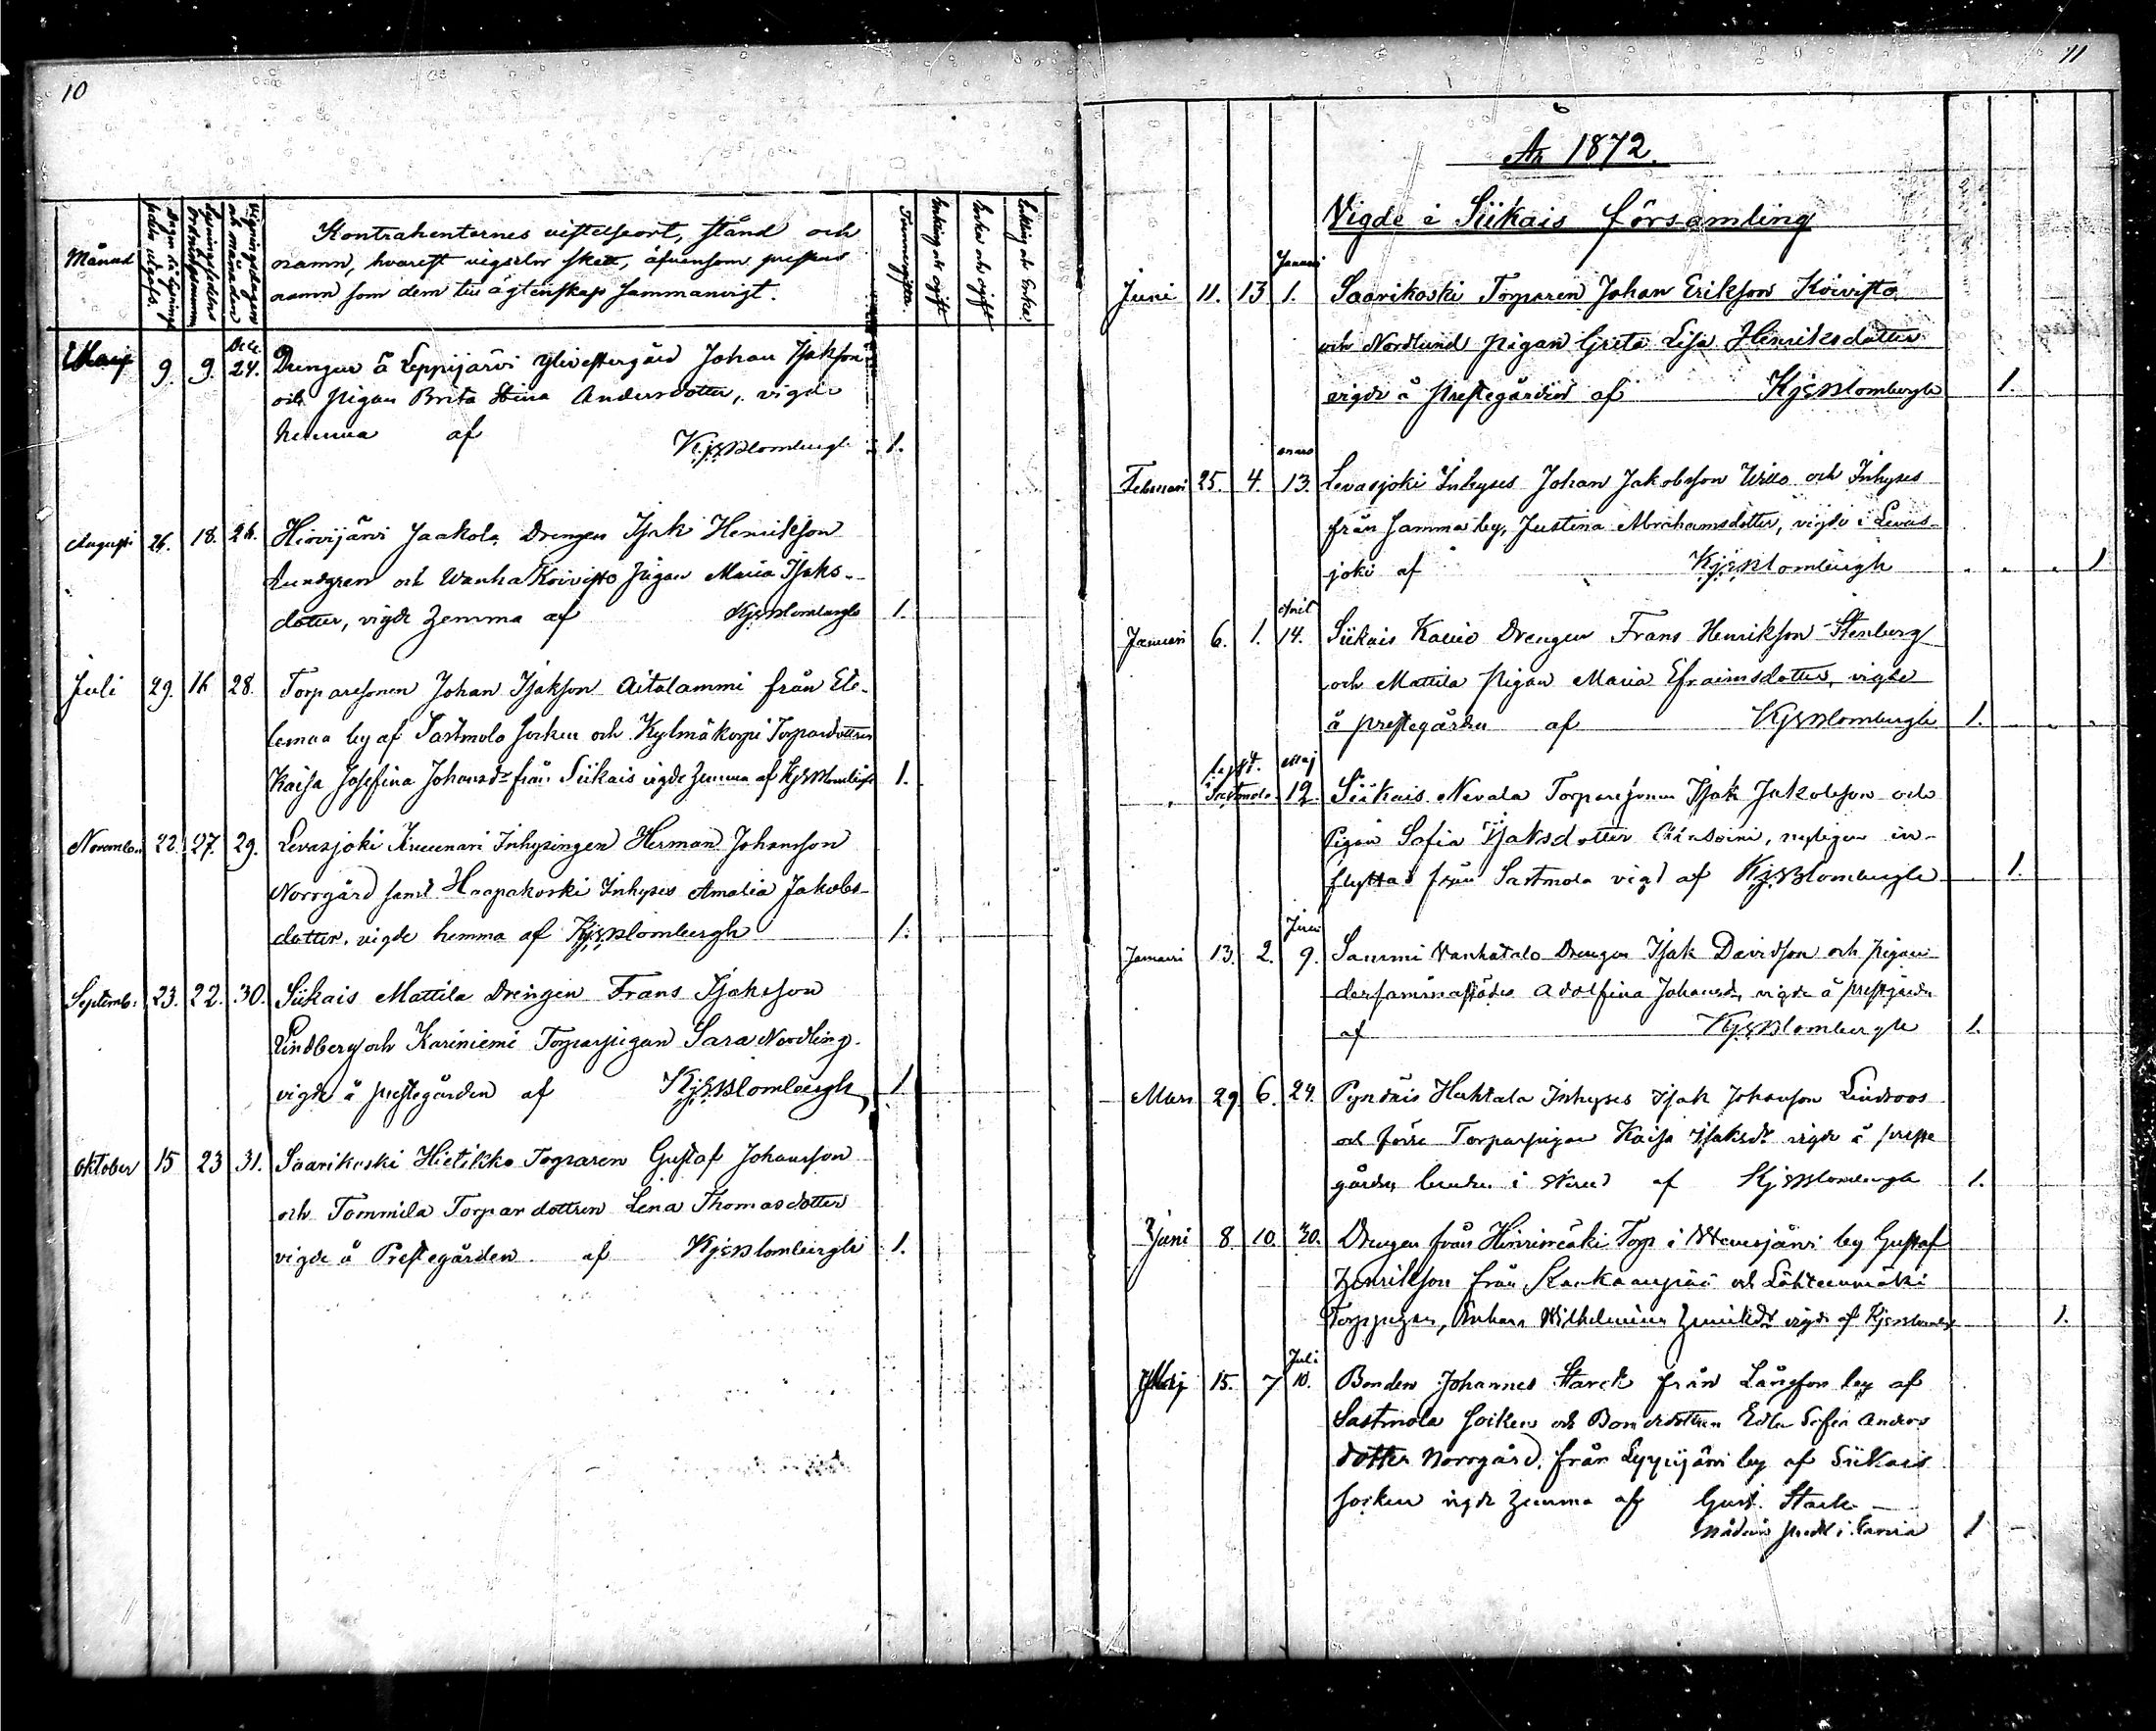 10
Månad
Dagen då lysningssedeln utgafs.
Lysningssedelns ordningsnummer
Vigningsdagen och månaden
Kontrahenternes vistelseort, stånd och
namn, hvarest vigseln skett, äfvensom prestens
namn som dem till ägtenskap sammanvigt.
Enkling och ogift
Enka och ogift
Enkling och Enka
Dec.
Maj 9. 9. 24. Drengen å Leppijärvi Ylivestergård Johan Isakson
och pigan Brita Stina Andersdotter, vigde
hemma af Kj: E: Blombergh 1.
Augusti 26. 18. 26. Hirvijärvi Jaakola Drengen Isak Henrikson
Lundgren och Wanha Koivisto pigan Maria Isaks-
dotter, vigde hemma af Kj: E: Blombergh 1.
Juli 29. 16 28. Torparesonen Johan Isakson Aitalammi från Ete-
lemaa by af Sastmola socken och Kylmäkorpi Torparedottren
Kaisa Josefina Johansdr från Siikais vigde hemma af Kj: E: Blombergh 1.
Novemb. 22. 27. 29. Levasjoki Inhysingen Herman Johansson
Norrgård samt Haapakoski Inhyses Amalia Jakobs-
dotter, vigde hemma af Kj: E: Blombergh 1.
Septemb. 23. 22. 30. Siikais Mattila Drengen Frans Isaksson
Lindberg och Kariniemi Torparpigan Sara Nordling
vigde å prestegården af Kj: E: Blombergh 1
Oktober 15 23 31. Saarikoski Hietikko Torparen Gustaf Johansson
och Tommila Torpardottren Lena Thomasdotter
vigde å Prestegården af Kj: E: Blombergh 1.
11
År 1872.
Vigde i Siikais församling
Januari
Juni 11. 13 1. Saarikoski Torparen Johan Erikson Koivisto
och Nordlund pigan Greta Lisa Henriksdotter
vigde å prestegården af Kj: E: Blombergh 1.
mars
Februari 25. 4. 13. Levasjoki Inhyses Johan Jakobsson Willo och Inhyses
från samma by, Justina Abrahamsdotter, vigde i Levas-
joki af Kj: E: Blombergh 1
April
Januari 6. 1. 14. Siikais Kallio Drengen Frans Henrikson Stenberg
och Mattila pigan Maria Efraimsdotter, vigde
å prestegården af Kj: E: Blombergh 1.
Maj
Sastmola 12 Siikais Nevala Torparesonen Isak Jakobsson och
Pigan Sofia Isaksdotter, nyligen in-
flyttad från Sastmola vigd af Kj: E: Blombergh 1.
Juni
Januari 13. 2. 9. Sammi Vanhatalo Drengen Isak Davidson och pigan
dersammastädes Adolfina Johansd. vigde å prestgården
af Kj: E: Blombergh 1.
Mars 29. 6. 24. Huhtala Inhyses Isak Johanson Lindroos
och förre Torparpigan Kaisa Isaksdr vigde å preste
gården af Kj: E: Blombergh 1.
Juni 8. 10. 30. Drengen från Torp i by Gustaf
Henrikson från Kankaanpää och Lähteenmäki
Torppigan, Enkan Wilhelmina Henriksdr vigde af Kj: E: Blombergh 1.
Juli
Maj 15. 7 10. Bonden Johannes Starck från Långfors by af
Sastmola socken och Bondedottren Edla Sofia Anders
dotter Norrgård, från Leppijärvi by af Siikais
socken vigde hemma af Gust. Stark
1